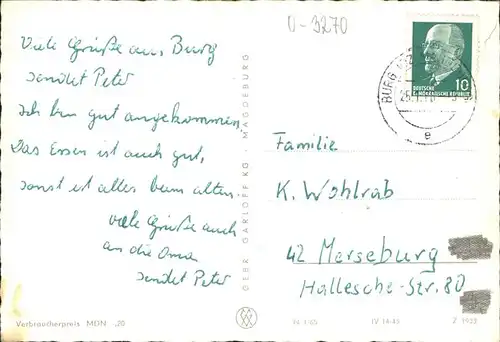 Viele Grüße aus Burg
sendet Peter
Ich bin gut angekommen.
Das Essen ist auch gut,
sonst ist alles beim alten.
viele Grüße auch
an die Oma
sendet Peter
Verbraucherpreis MDN ,20
GEBR. GARLOFF KG · MAGDEBURG
0-3270
BURG
e
10
DEUTSCHE
DEMOKRATISCHE REPUBLIK
Familie
K. Wohlrab
42 Merseburg
Hallesche-Str. 80
IV 14-45
Z 1922